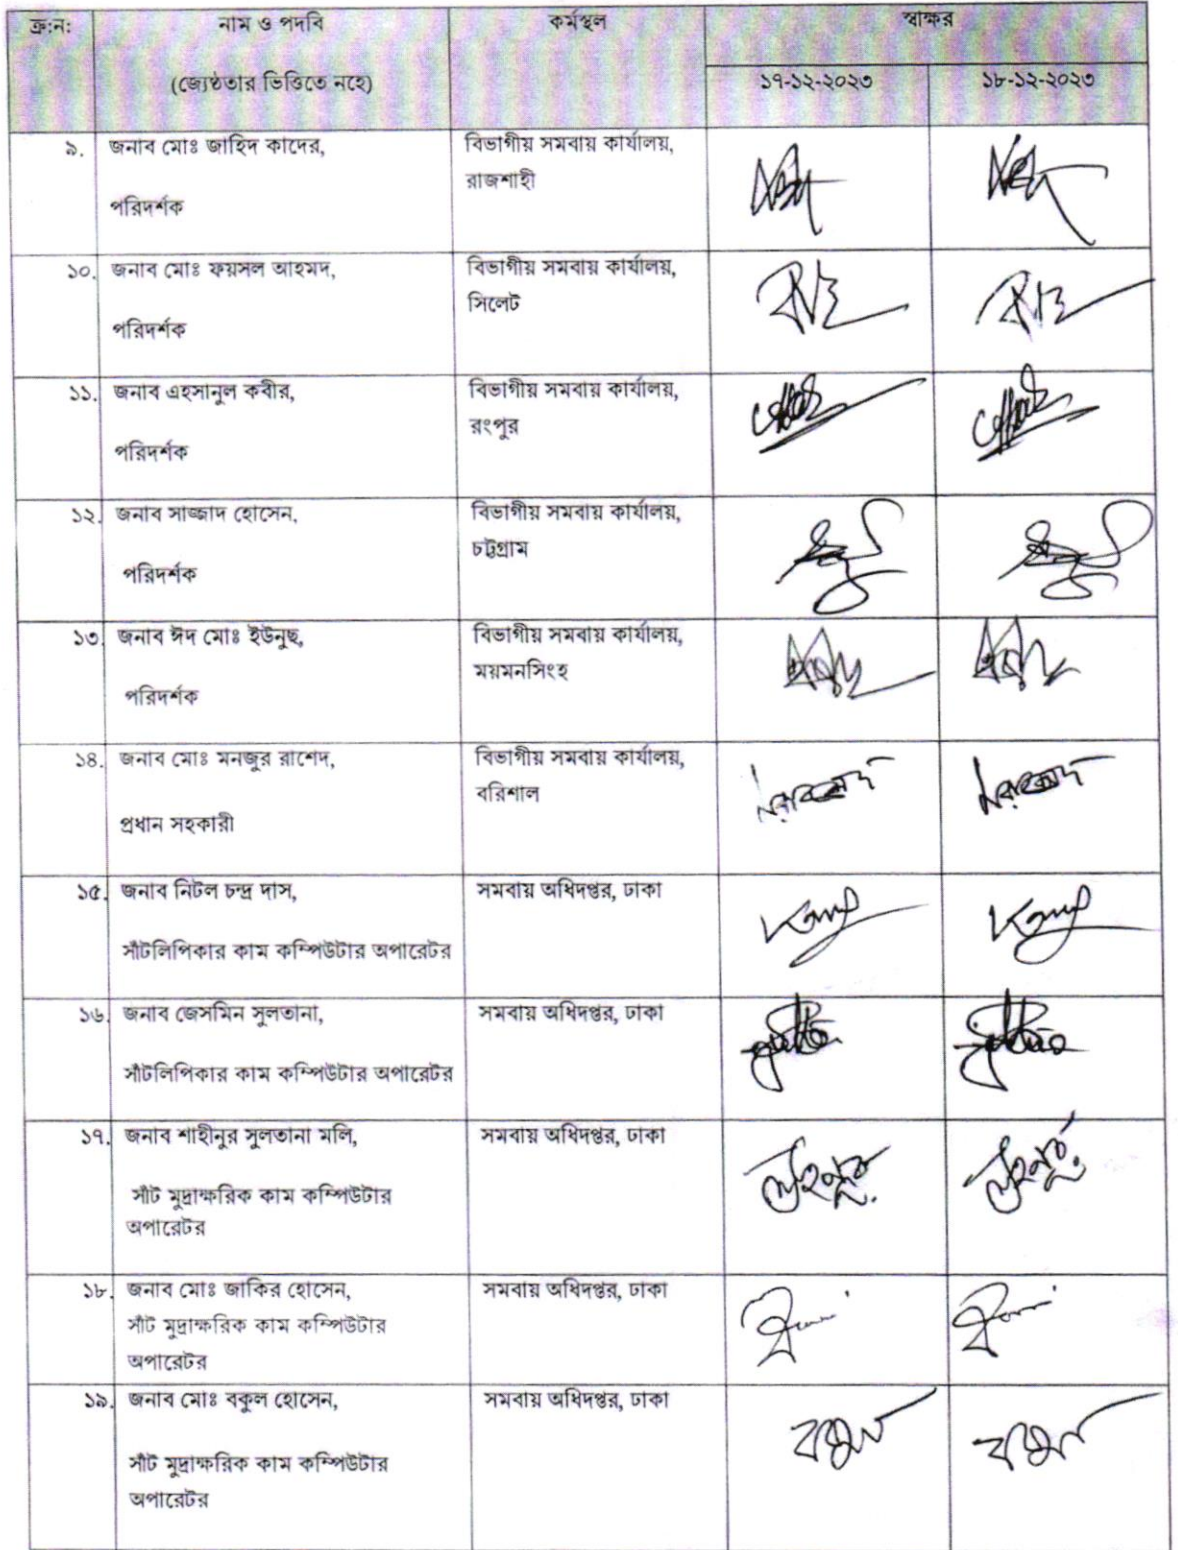 ক্র:ন:
নাম ও পদবি
(জ্যেষ্ঠতার ভিত্তিতে নহে)
কর্মস্থল
স্বাক্ষর
১৭-১২-২০২৩
১৮-১২-২০২৩
৯.
জনাব মোঃ জাহিদ কাদের,
পরিদর্শক
বিভাগীয় সমবায় কার্যালয়,
রাজশাহী
১০.
জনাব মোঃ ফয়সল আহমদ,
পরিদর্শক
বিভাগীয় সমবায় কার্যালয়,
সিলেট
১১.
জনাব এহসানুল কবীর,
পরিদর্শক
বিভাগীয় সমবায় কার্যালয়,
রংপুর
১২.
জনাব সাজ্জাদ হোসেন,
পরিদর্শক
বিভাগীয় সমবায় কার্যালয়,
চট্টগ্রাম
১৩.
জনাব ঈদ মোঃ ইউনুছ,
পরিদর্শক
বিভাগীয় সমবায় কার্যালয়,
ময়মনসিংহ
১৪.
জনাব মোঃ মনজুর রাশেদ,
প্রধান সহকারী
বিভাগীয় সমবায় কার্যালয়,
বরিশাল
১৫.
জনাব নিটল চন্দ্র দাস,
সাঁটলিপিকার কাম কম্পিউটার অপারেটর
সমবায় অধিদপ্তর, ঢাকা
১৬.
জনাব জেসমিন সুলতানা,
সাঁটলিপিকার কাম কম্পিউটার অপারেটর
সমবায় অধিদপ্তর, ঢাকা
১৭.
জনাব শাহীনুর সুলতানা মলি,
সাঁট মুদ্রাক্ষরিক কাম কম্পিউটার
অপারেটর
সমবায় অধিদপ্তর, ঢাকা
১৮.
জনাব মোঃ জাকির হোসেন,
সাঁট মুদ্রাক্ষরিক কাম কম্পিউটার
অপারেটর
সমবায় অধিদপ্তর, ঢাকা
১৯.
জনাব মোঃ বকুল হোসেন,
সাঁট মুদ্রাক্ষরিক কাম কম্পিউটার
অপারেটর
সমবায় অধিদপ্তর, ঢাকা